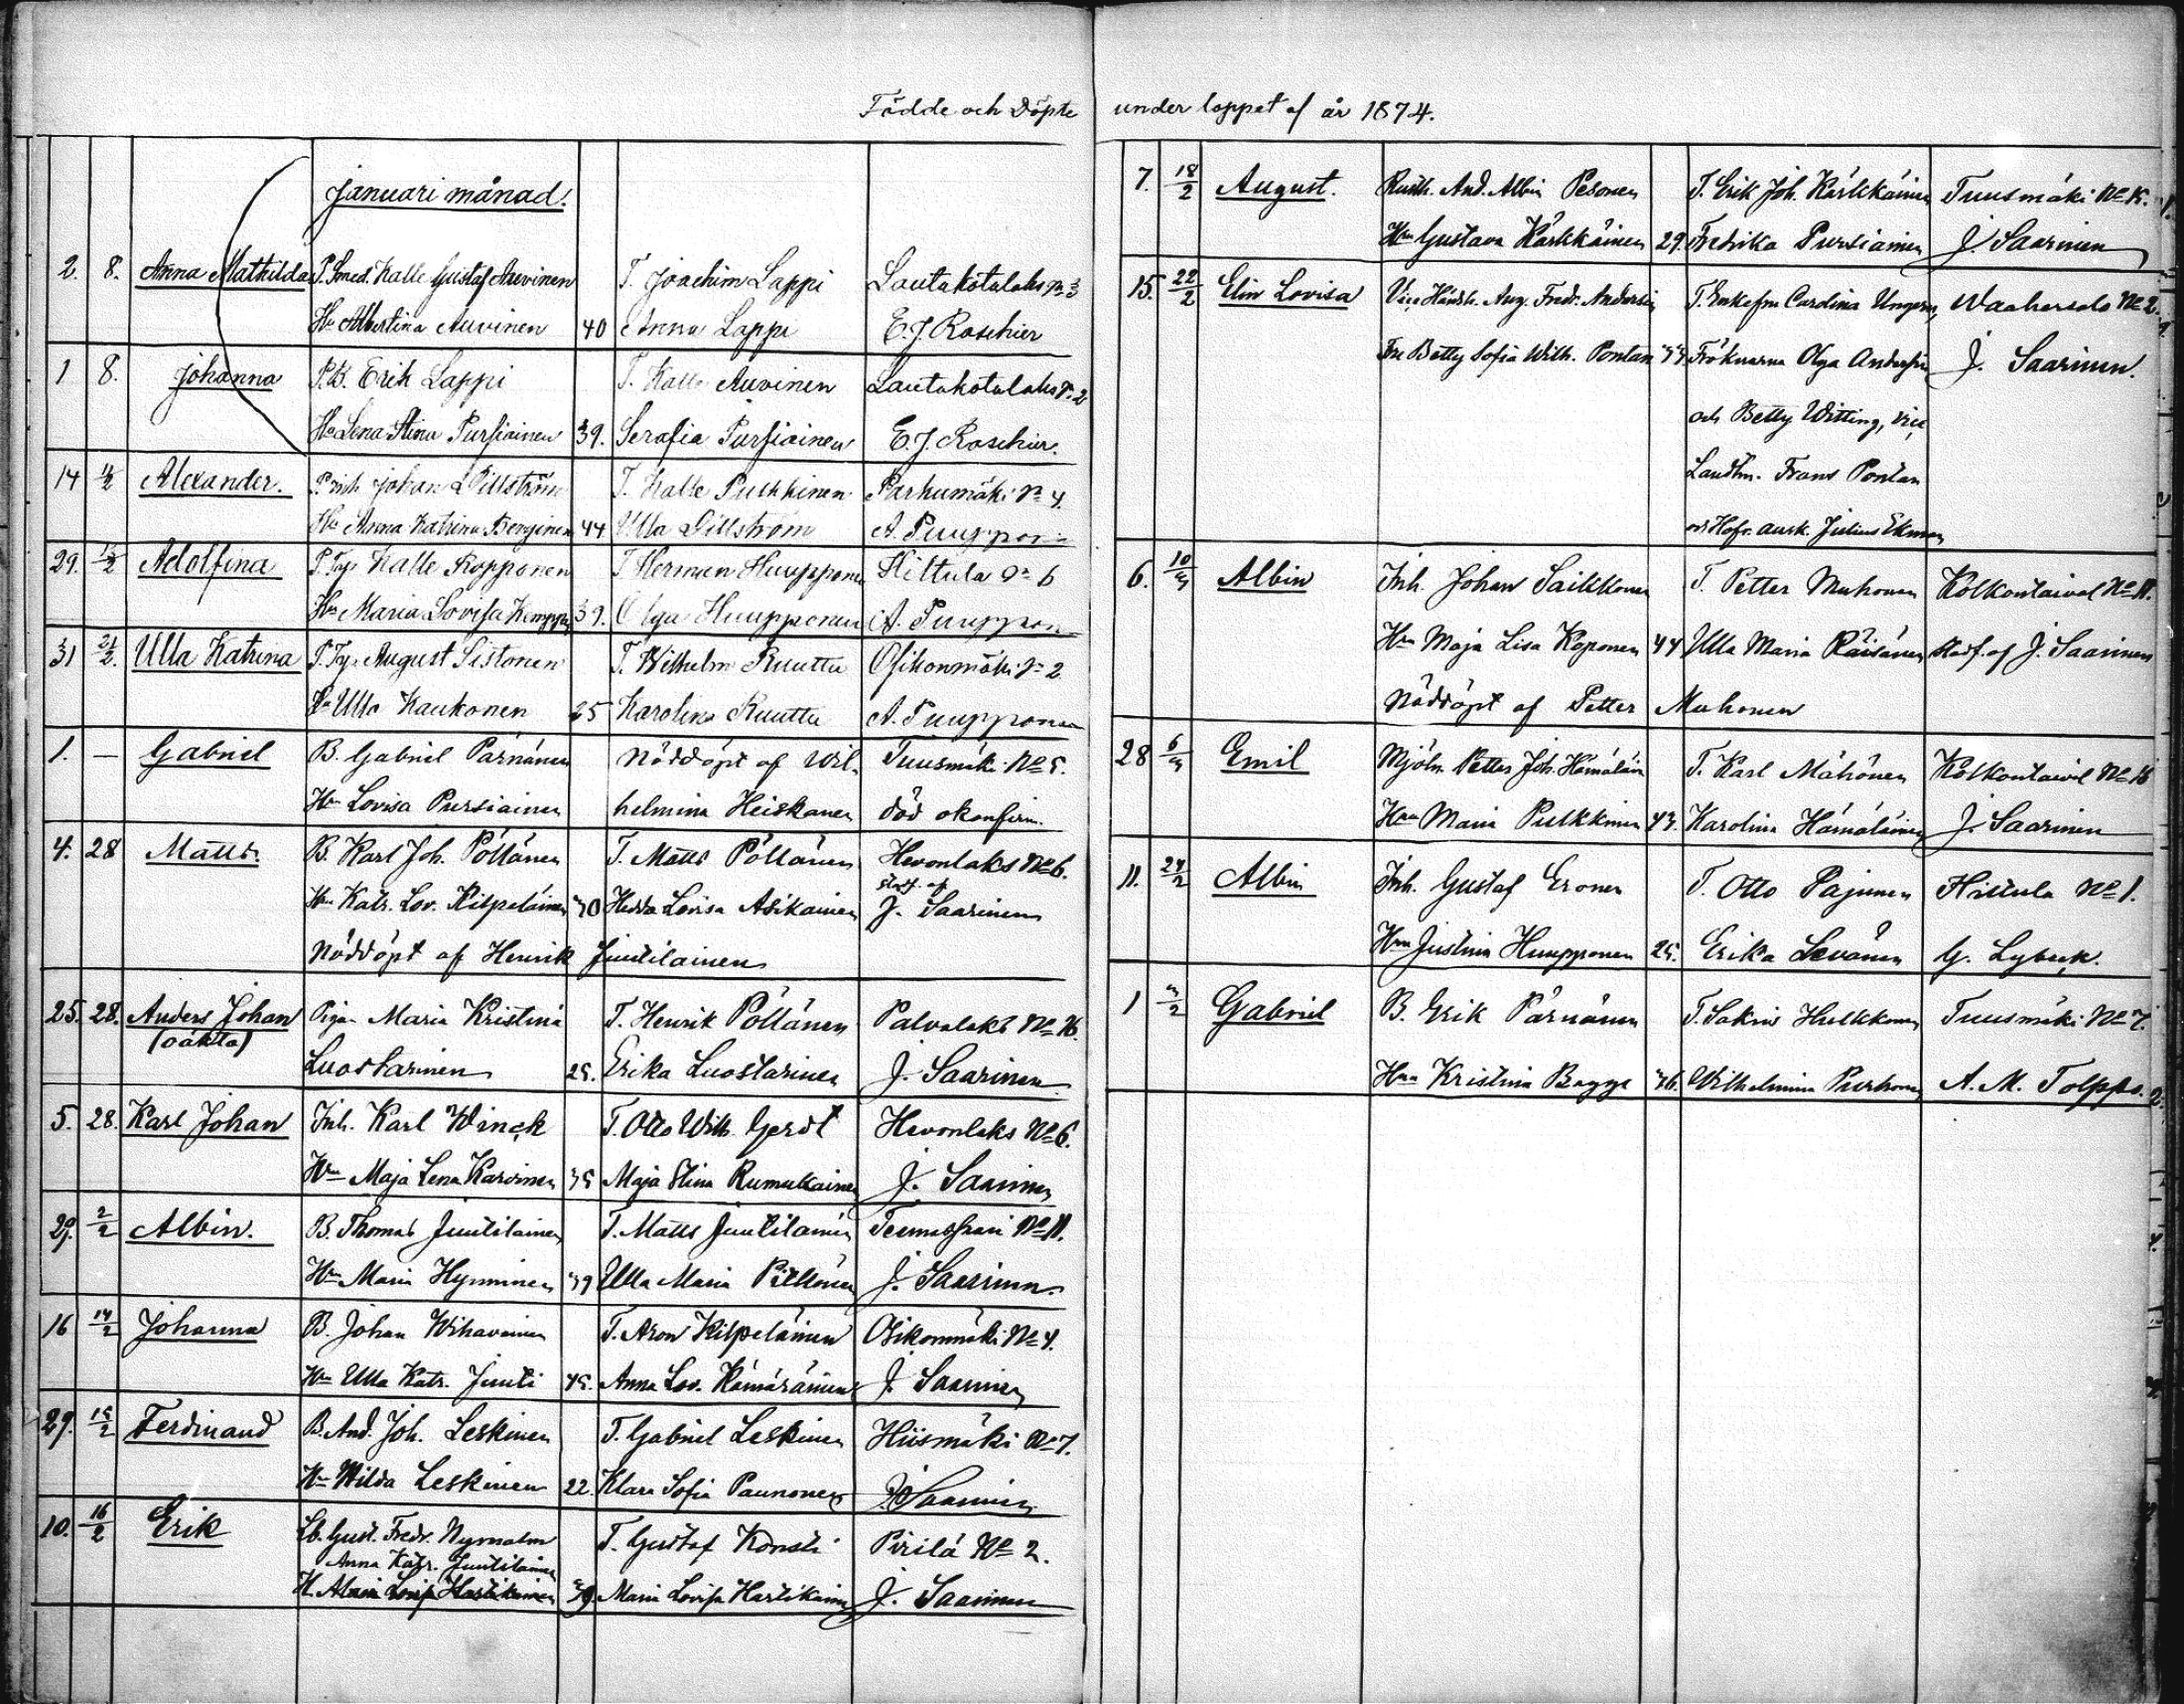 Födde och Döpte under loppet af år 1874.
Januari månad.
2. 8. Anna Mathilda P. Smed. Kalle Gustaf Auvinen T. Joachim Lappi Lautakotalaks No 3
Hu Albertina Auvinen 40 Anna Lappi E. J. Roschier
1 8. Johanna P. B. Erik Lappi T. Kalle Auvinen Lautakotalaks No 2
Hu Lena Stina Pursiainen 39. Serafia Pursiainen E. J. Roschier.
14 Alexander. P. inh. Johan Lillström T. Kalle Pulkkinen Parkumäki No 4.
Hu Anna Katrina 44 Ulla Lillström A. Puupponen
29. Adolfina P. Kalle Ropponen T. Herman Huupponen Hiltula No 6
Hu Maria Lovisa 39. Olga Huupponen A. Puupponen
31 21/2. Ulla Katrina P. August Sistonen T. Wilhelm Ruuttu Osikonmäki No 2.
Hu Ulla Kaukonen 25 Karolina Ruuttu A. Puupponen
1. — Gabriel B. Gabriel Pärnänen Nöddöpt af Wil- Tuusmäki No 5.
Hun Lovisa Pursiainen helmina Heiskanen död okonfirm.
4. 28 Matts. B. Karl Joh. Pöllänen T. Matts Pöllänen Hevonlaks No 6.
Hun Katr. Lov. Kilpeläinen 30 Hedda Lovisa Asikainen stadf. af J. Saarinen
Nöddöpt af Henrik Juutilainen
25. 28. Anders Johan Pigan Maria Kristina T. Henrik Pöllänen Palvalaks No 16.
(oäkta) Luostarinen 25. Erika Luostarinen J. Saarinen
5. 28. Karl Johan Inh. Karl Winck T. Otto Wilh. Gerdt Hevonlaks No 6.
Hun Maja Lena Karvinen 35 Maja Stina Rumukainen J. Saarinen
29. 2/2 Albin. B. Thomas Juutilainen T. Matts Juutilainen No 11.
Hun Maria Hynninen 39 Ulla Maria J. Saarinen
16 14/2 Johanna B. Johan Wihavainen T. Aron Kilpeläinen Osikonmäki No 4.
Hun Ulla Katr. Juuti 45. Anna Lov. Hämäräinen J. Saarinen
29. 15/2 Ferdinand B. And. Joh. Leskinen T. Gabriel Leskinen Hiismäki No 7.
Hun Hilda Leskinen 22. Klara Sofia Paunonen J. Saarinen
10. 16/2 Erik Lb. Gust. Fredr. Nymalm T. Gustaf Konsti Pirilä No 2.
Anna Katr. Juutilainen
H. Maria Lovisa Hartikainen 39. Maria Lovisa Hartikainen J. Saarinen
7. 18/2 August. Rusth. And. Albin Pesonen T. Erik Joh. Kärkkäinen Tuusmäki No 15.
Hun Gustava Kärkkäinen 29. Fredrika Pursiainen J. Saarinen
15. 22/2 Elin Lovisa Vice Häradsh. Aug. Fredr. Andersin T. Enkefru Carolina Ungern, Waahersalo No 2.
Fru Betty Sofia Wilh. Pontan 33 Fröknarna Olga Andersin J. Saarinen.
och Betty Witting, vice
Landtm. Frans Pontan
och Hofr. ausk. Julius Ekman
6. 10/3 Albin Inh. Johan Saikkonen T. Petter Muhonen Kolkontaival No 11.
Hun Maja Lisa Koponen 44 Ulla Maria Räisänen stadf. af J. Saarinen
Nöddöpt af Petter Muhonen
28 6/3 Emil Mjöln. Petter Joh. Hämäläin T. Karl Mähönen Kolkontaival No 16
Hun Maria Pulkkinen 43. Karolina Hämäläinen J. Saarinen
11. 24/2 Albin Inh. Gustaf Eronen T. Otto Pajunen Hiltula No 1.
Hun Justina Huupponen 25. Erika Levänen G. Lybeck.
1 3/2 Gabriel B. Erik Pärnänen T. Sakris Hulkkonen Tuusmäki No 7.
Hun Kristina Bagge 36. Wilhelmina Purhonen A. M. Tolpo.